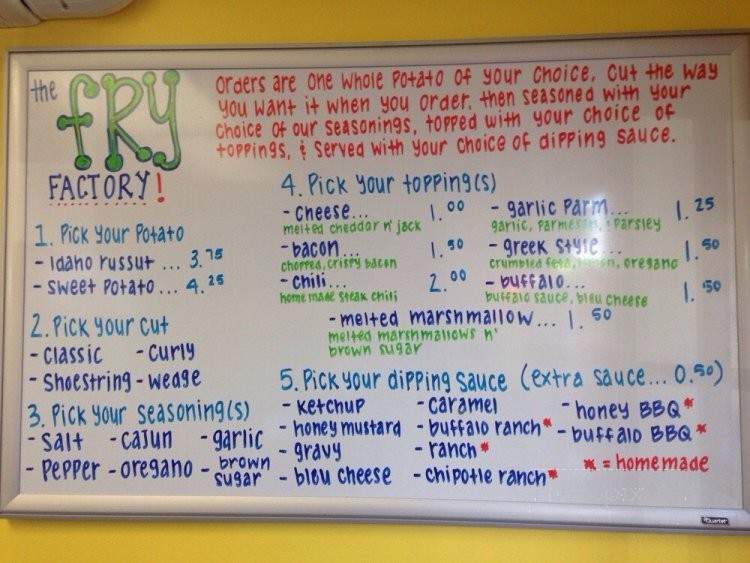 the
FRY
FACTORY!
Orders are one whole potato of your choice, cut the way
you want it when you order, then seasoned with your
choice of our seasonings, topped with your choice of
toppings, & served with your choice of dipping sauce.
1. Pick your Potato
- Idaho russut ... 3.75
- Sweet Potato ... 4.25
2. Pick your cut
- Classic - Curly
- Shoestring - wedge
3. Pick your seasoning(s)
- Salt - Cajun - garlic
- Pepper - oregano - brown sugar
4. Pick your topping(s)
- Cheese... 1.00
melted cheddar n' jack
- bacon... 1.50
chopped, crispy bacon
- Chili... 2.00
home made steak chili
- garlic Parm... 1.25
garlic, Parmesan, parsley
- greek style... 1.50
crumbled feta, oregano
- buffalo... 1.50
buffalo sauce, bleu cheese
- melted marshmallow... 1.50
melted marshmallows n'
brown sugar
5. Pick your dipping sauce (extra sauce... 0.50)
- Ketchup
- honey mustard
- gravy
- bleu cheese
- Caramel
- buffalo ranch*
- ranch*
- chipotle ranch*
- honey BBQ*
- buffalo BBQ*
* = homemade
Quartet